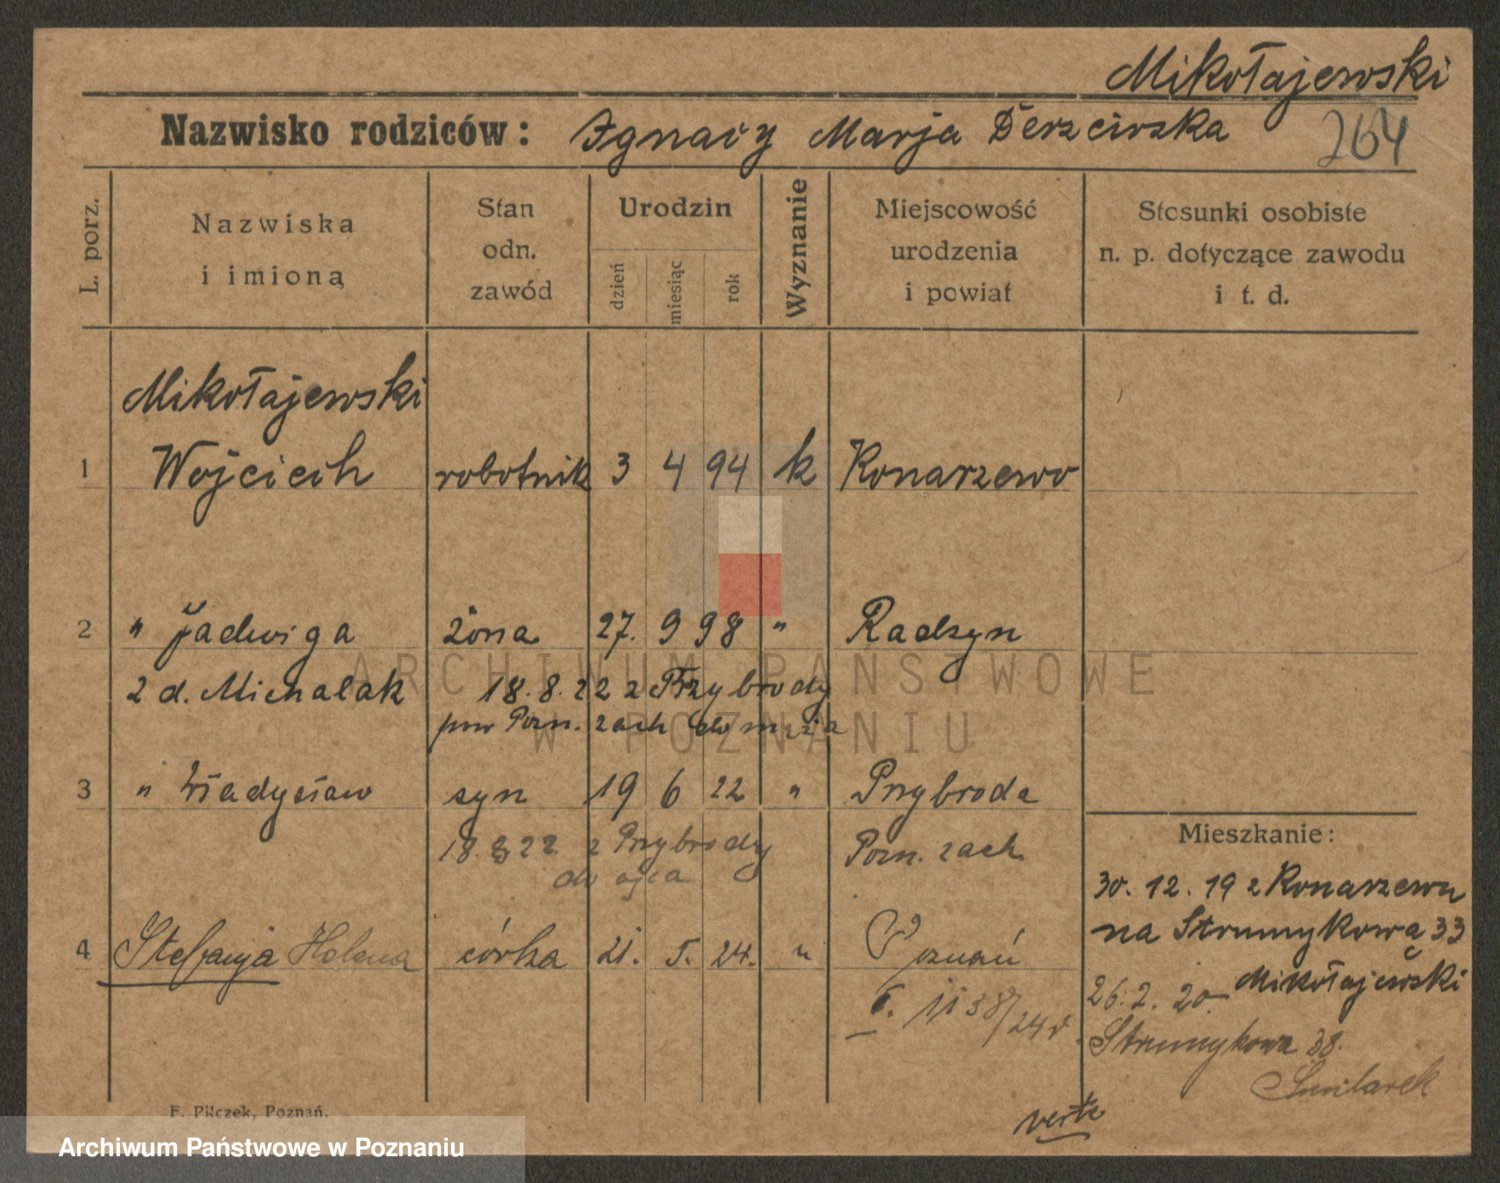 Mikołajewski
Nazwisko rodziców: Ignacy Marja Derzcirska
264
L. porz.
Nazwiska
i imioną
Stan
odn.
zawód
Urodzin
dzień
miesiąc
rok
Wyznanie
Miejscowość
urodzenia
i powiat
Stosunki osobiste
n. p. dotyczące zawodu
i t. d.
Mikołajewski
1 Wojciech robotnik 3 4 94 k Konarzewo
2 " Jadwiga żona 27. 9 98 " Radzyn
2 d. Michalak 18.8.22 z Przybrody
pow Pozn. zach do męża
3 " Władysław syn 19 6 22 " Przybroda
18. 8 22. z Przybrody Pozn. zach
do ojca
4 Stefanja Helena córka 21. 5. 24. " Poznań
1138/24
Mieszkanie:
30. 12. 19 z Konarzewa
na Strumykową 33
Mikołajewski
26. 2. 20
Strumykowa 38.
verte
F. Pilczek, Poznań.
ARCHIWUM PAŃSTWOWE
W POZNANIU
Archiwum Państwowe w Poznaniu